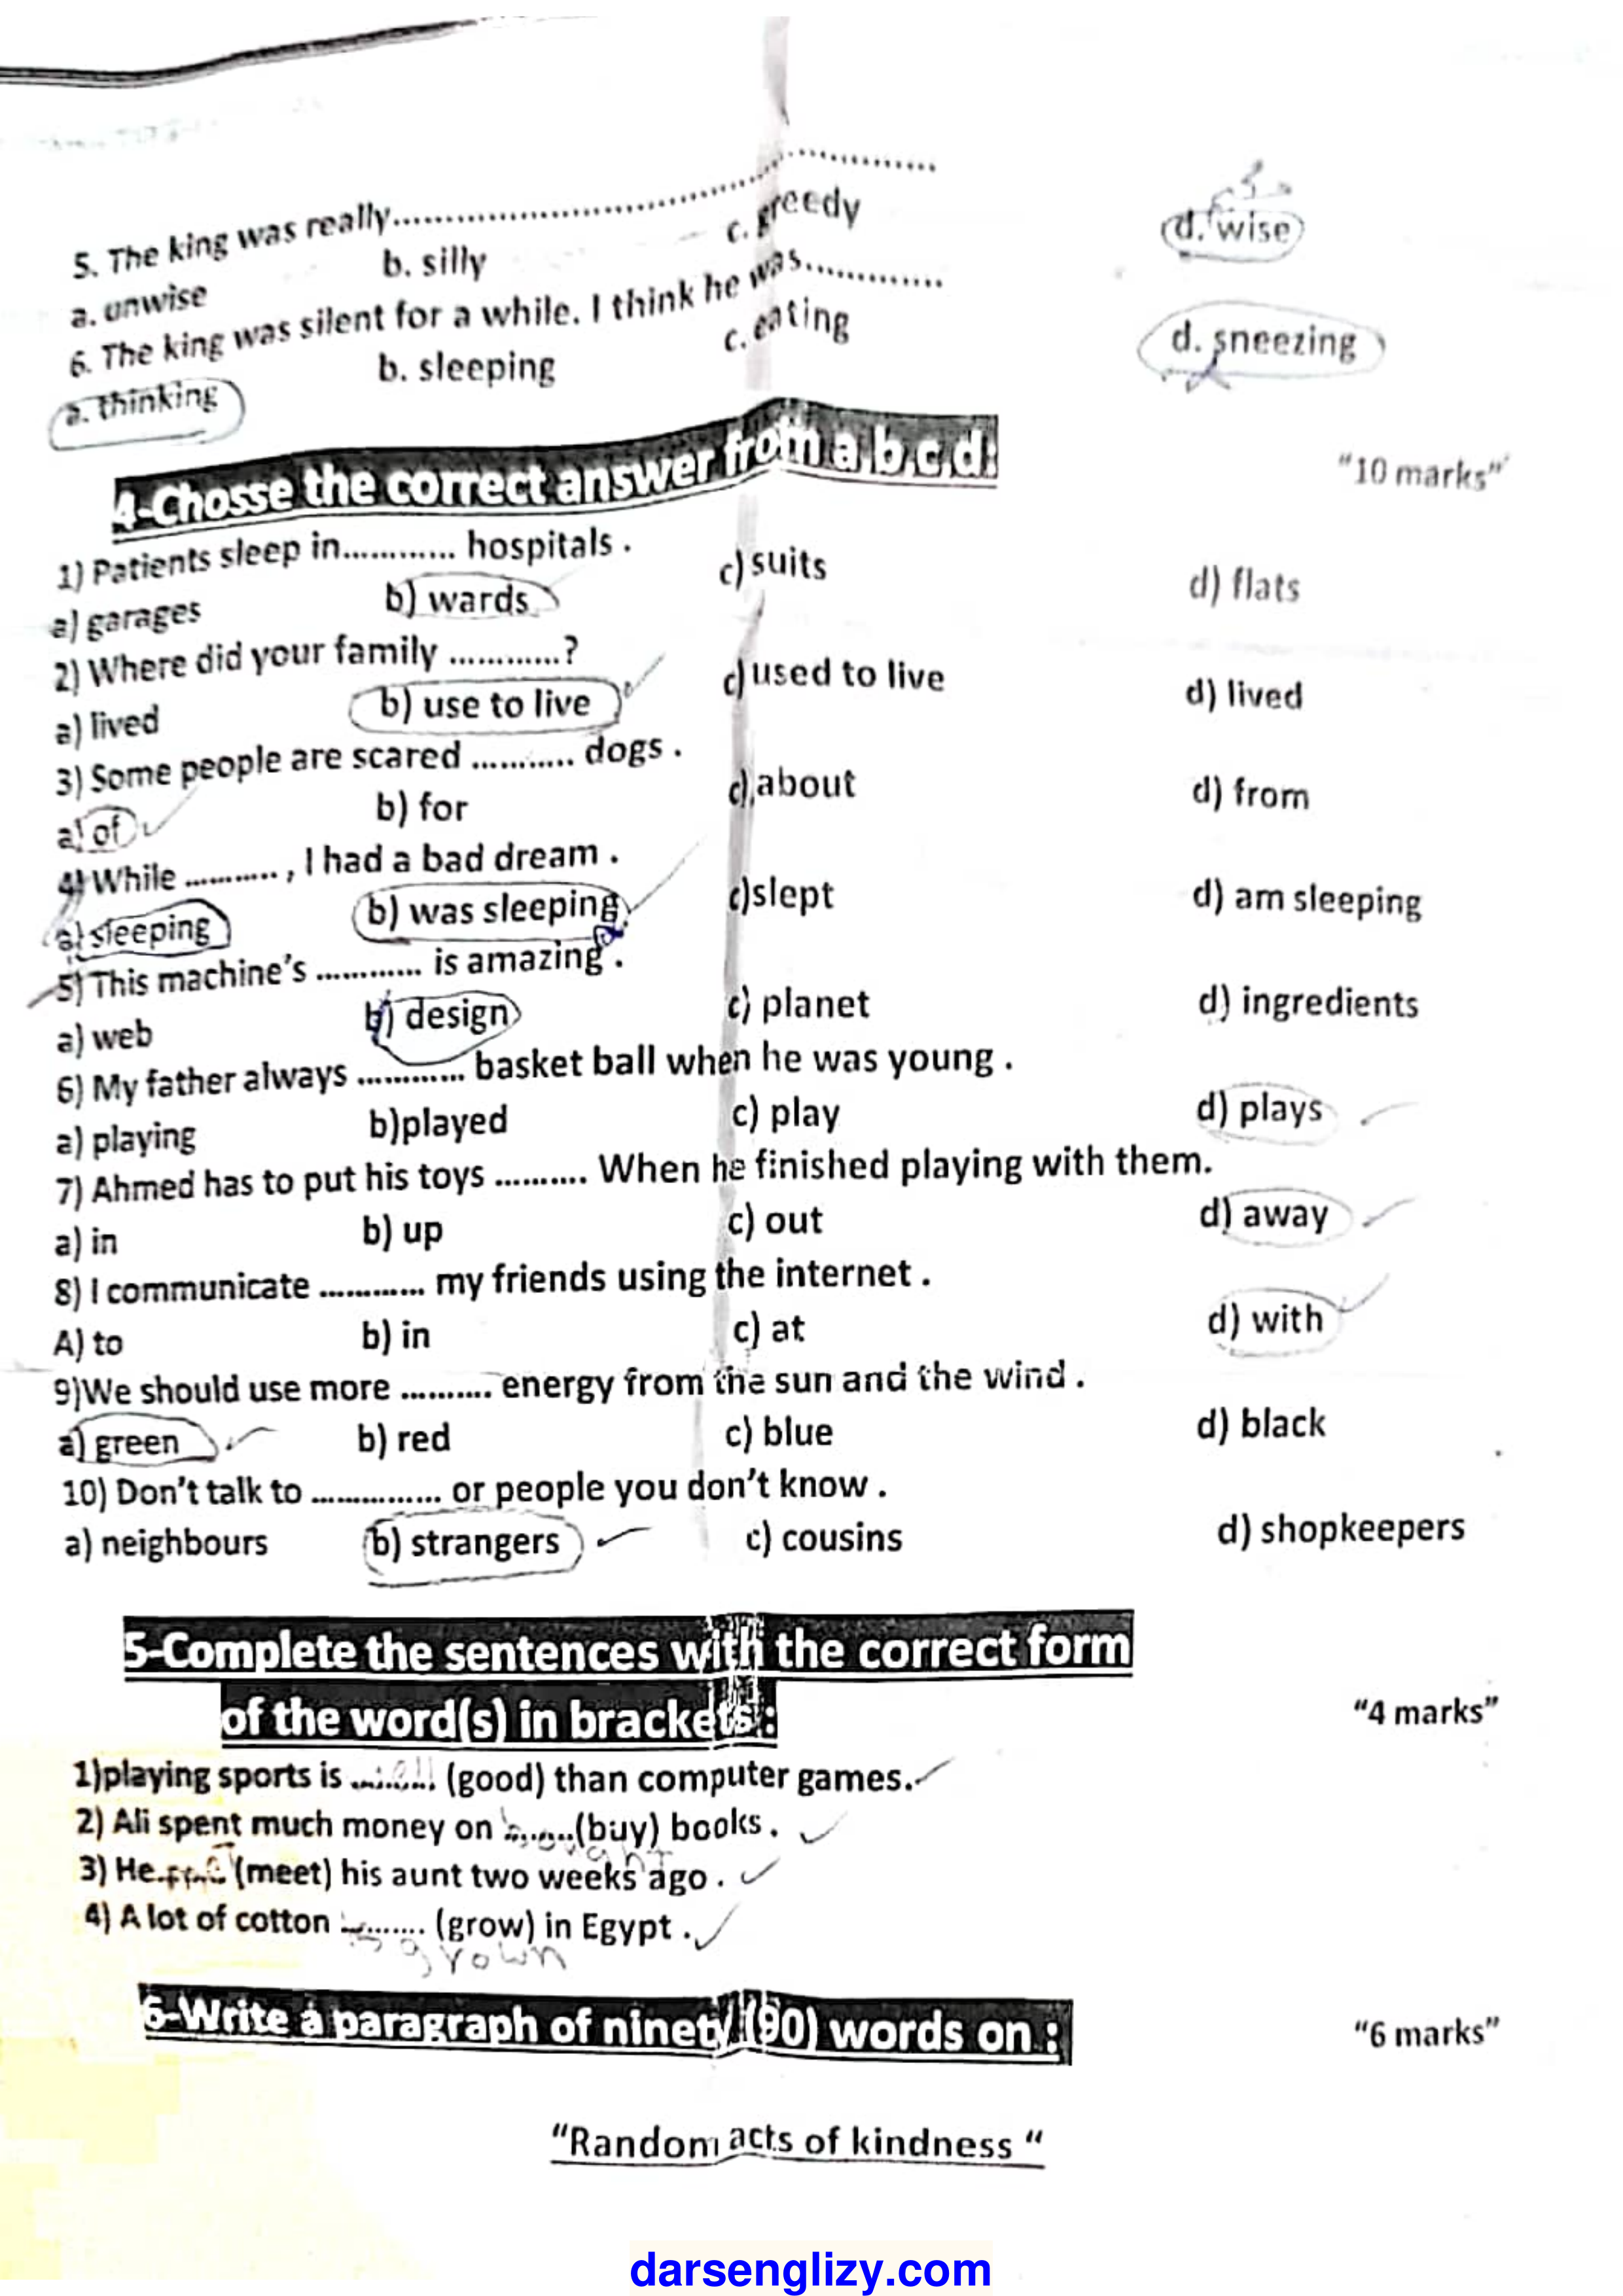 5. The king was really........................................................
a. unwise b. silly c. greedy d. wise
6. The king was silent for a while. I think he was.............
a. thinking b. sleeping c. eating d. sneezing
4-Chosse the correct answer from a,b,c,d: "10 marks"
1) Patients sleep in............ hospitals .
a) garages b) wards c) suits d) flats
2) Where did your family ............?
a) lived b) use to live c) used to live d) lived
3) Some people are scared ........... dogs .
a) of b) for c) about d) from
4) While .........., I had a bad dream .
a) sleeping b) was sleeping c)slept d) am sleeping
5) This machine's ............ is amazing .
a) web b) design c) planet d) ingredients
6) My father always ............ basket ball when he was young .
a) playing b)played c) play d) plays
7) Ahmed has to put his toys .......... When he finished playing with them.
a) in b) up c) out d) away
8) I communicate ............ my friends using the internet .
A) to b) in c) at d) with
9)We should use more .......... energy from the sun and the wind .
a) green b) red c) blue d) black
10) Don't talk to ............... or people you don't know .
a) neighbours b) strangers c) cousins d) shopkeepers
5-Complete the sentences with the correct form
of the word(s) in brackets : "4 marks"
1)playing sports is ......... (good) than computer games.
2) Ali spent much money on ........(buy) books .
bought
3) He........(meet) his aunt two weeks ago .
4) A lot of cotton ......... (grow) in Egypt .
is grown
6-Write a paragraph of ninety (90) words on : "6 marks"
"Random acts of kindness "
darsenglizy.com